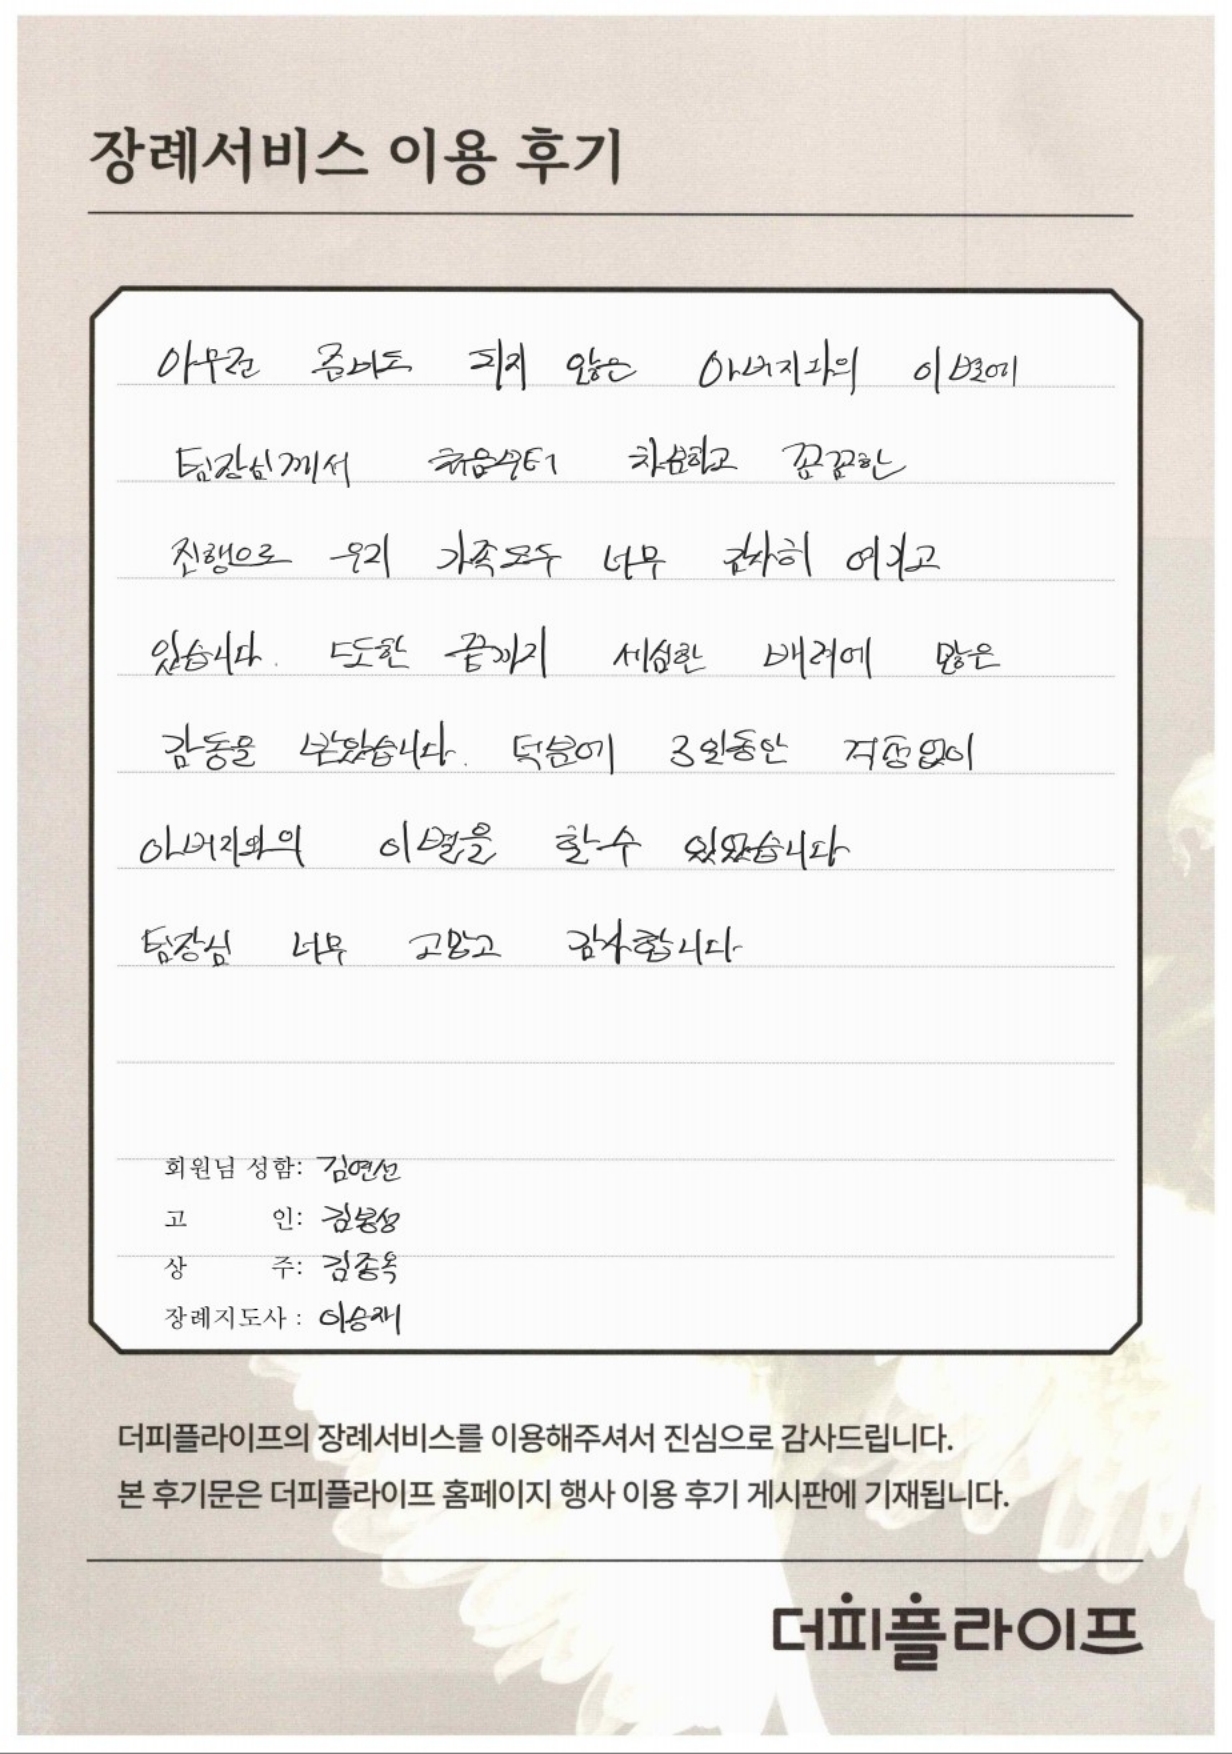 장례서비스 이용 후기
아무런 준비도 되지 않은 아버지와의 이별에
팀장님께서 처음부터 차분하고 꼼꼼한
진행으로 우리 가족모두 너무 감사히 여기고
있습니다. 또한 끝까지 세심한 배려에 많은
감동을 받았습니다. 덕분에 3일동안 걱정없이
아버지와의 이별을 할수 있었습니다
팀장님 너무 고맙고 감사합니다
회원님 성함: 김연선
고 인: 김봉성
상 주: 김종옥
장례지도사 : 이승재
더피플라이프의 장례서비스를 이용해주셔서 진심으로 감사드립니다.
본 후기문은 더피플라이프 홈페이지 행사 이용 후기 게시판에 기재됩니다.
더피플라이프